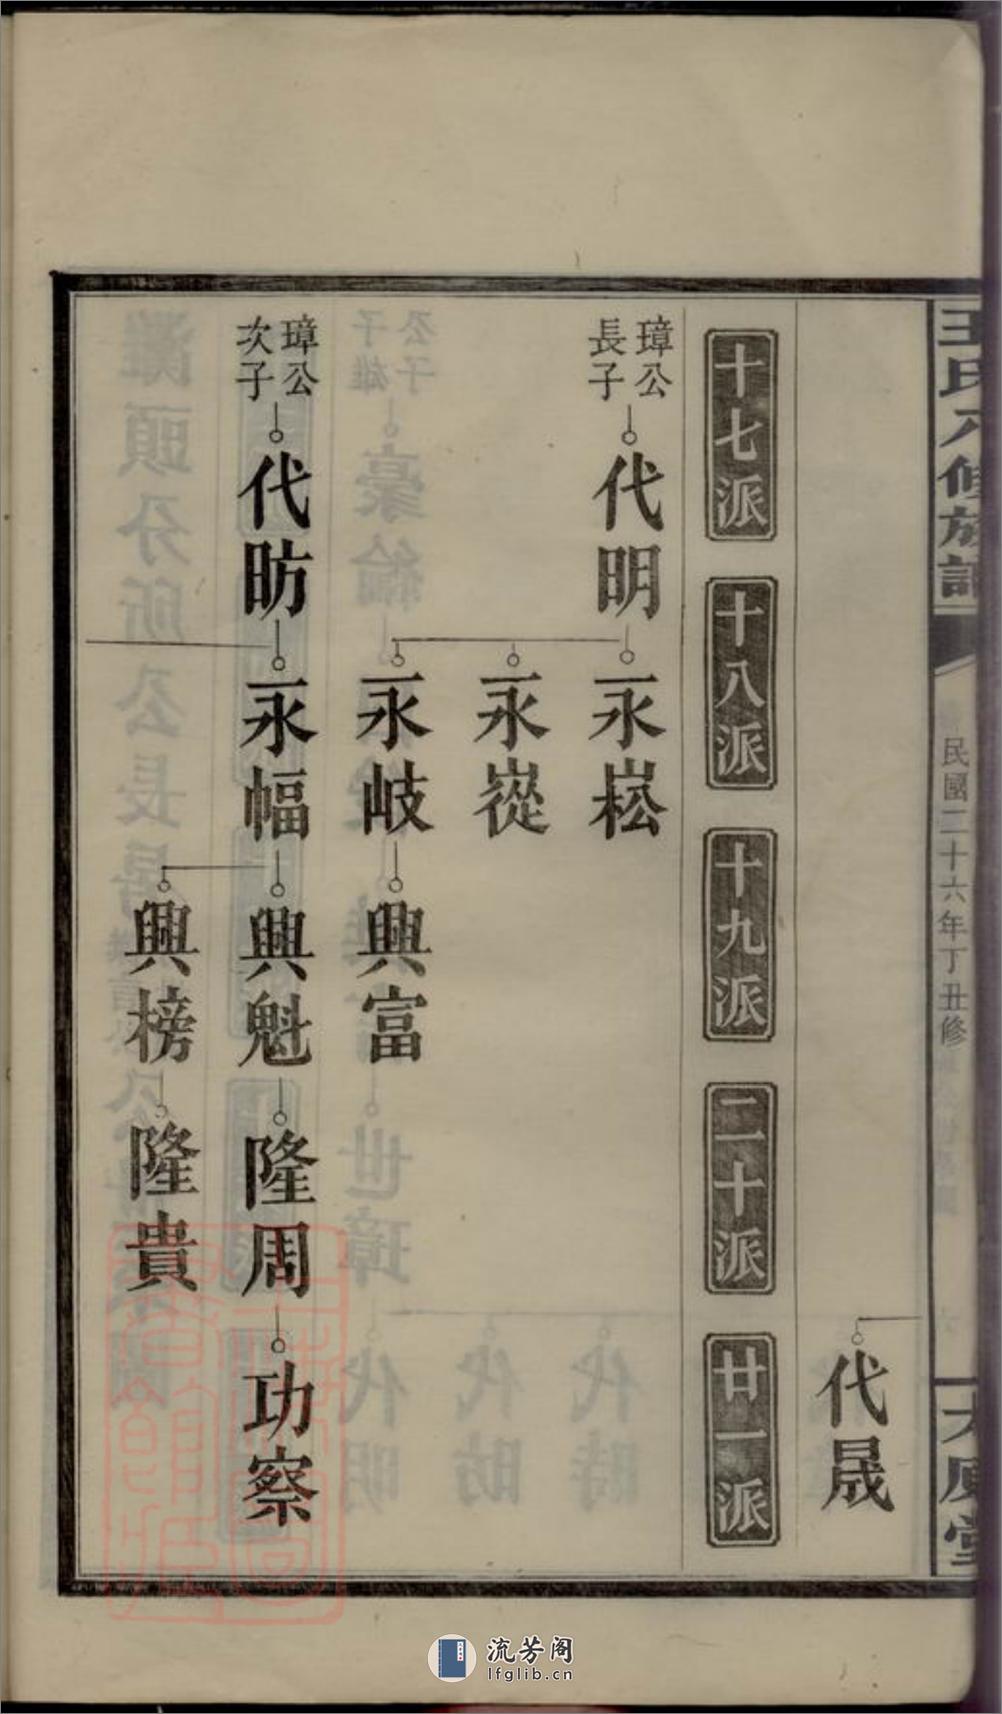 王氏八修族譜
民國二十六年丁丑修
太原堂
代晟
十七派
十八派
十九派
二十派
廿一派
璋公
長子
代明
永崧
永嵸
永岐
興富
璋公
次子
代昉
永幅
興魁
隆周
功察
興榜
隆貴
流芳阁
lfglib.cn